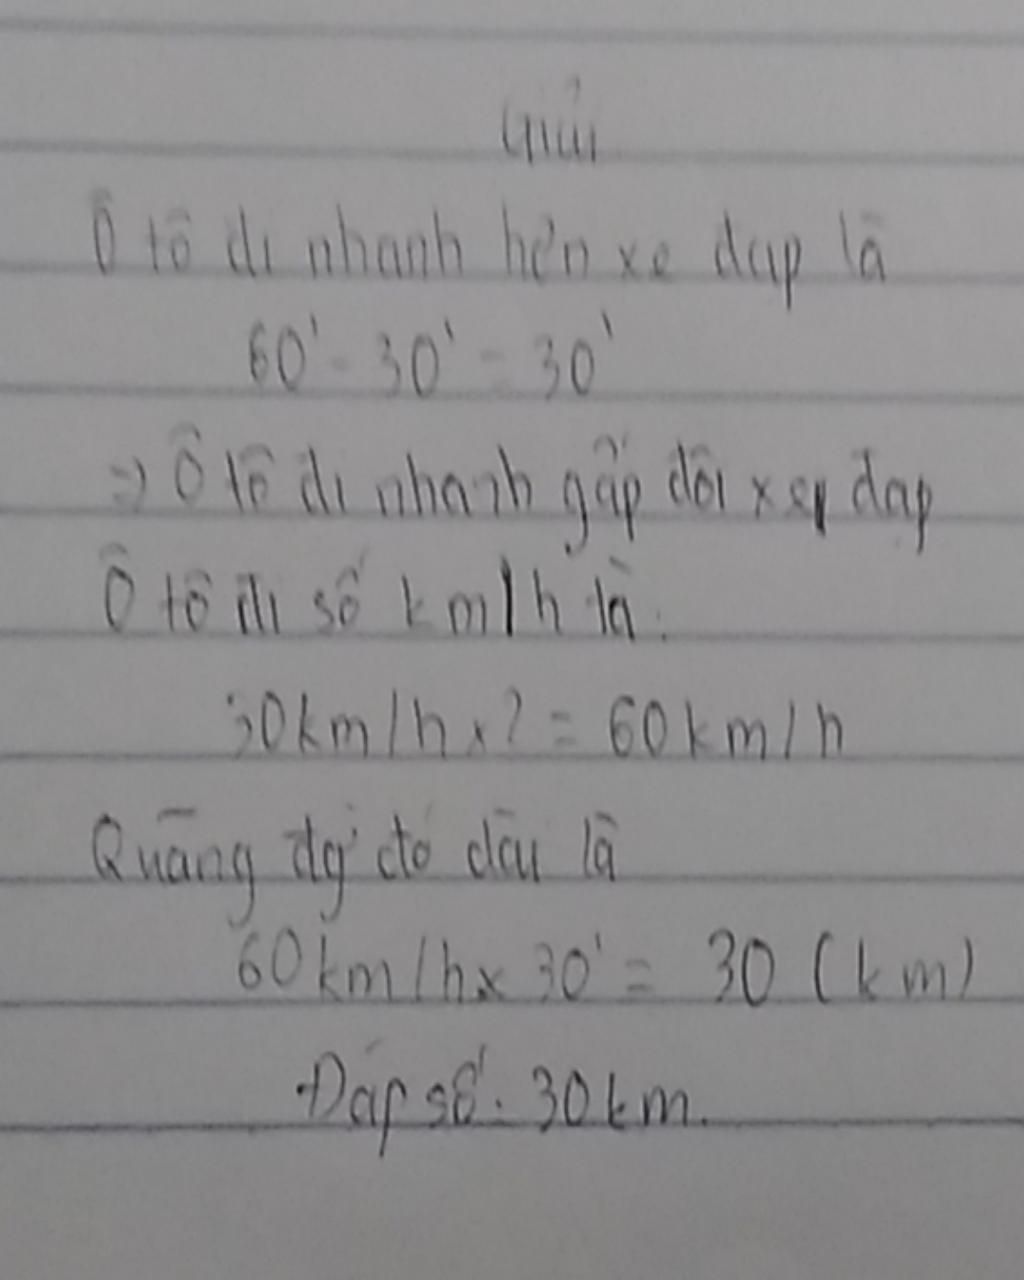 Giải
Ô tô đi nhanh hơn xe đạp là
60' - 30' = 30'
=> Ô tô đi nhanh gấp đôi xe đạp
Ô tô đi số km/h là:
30km/h x 2 = 60km/h
Quãng đg đó dài là
60km/h x 30' = 30 (km)
Đáp số: 30km.